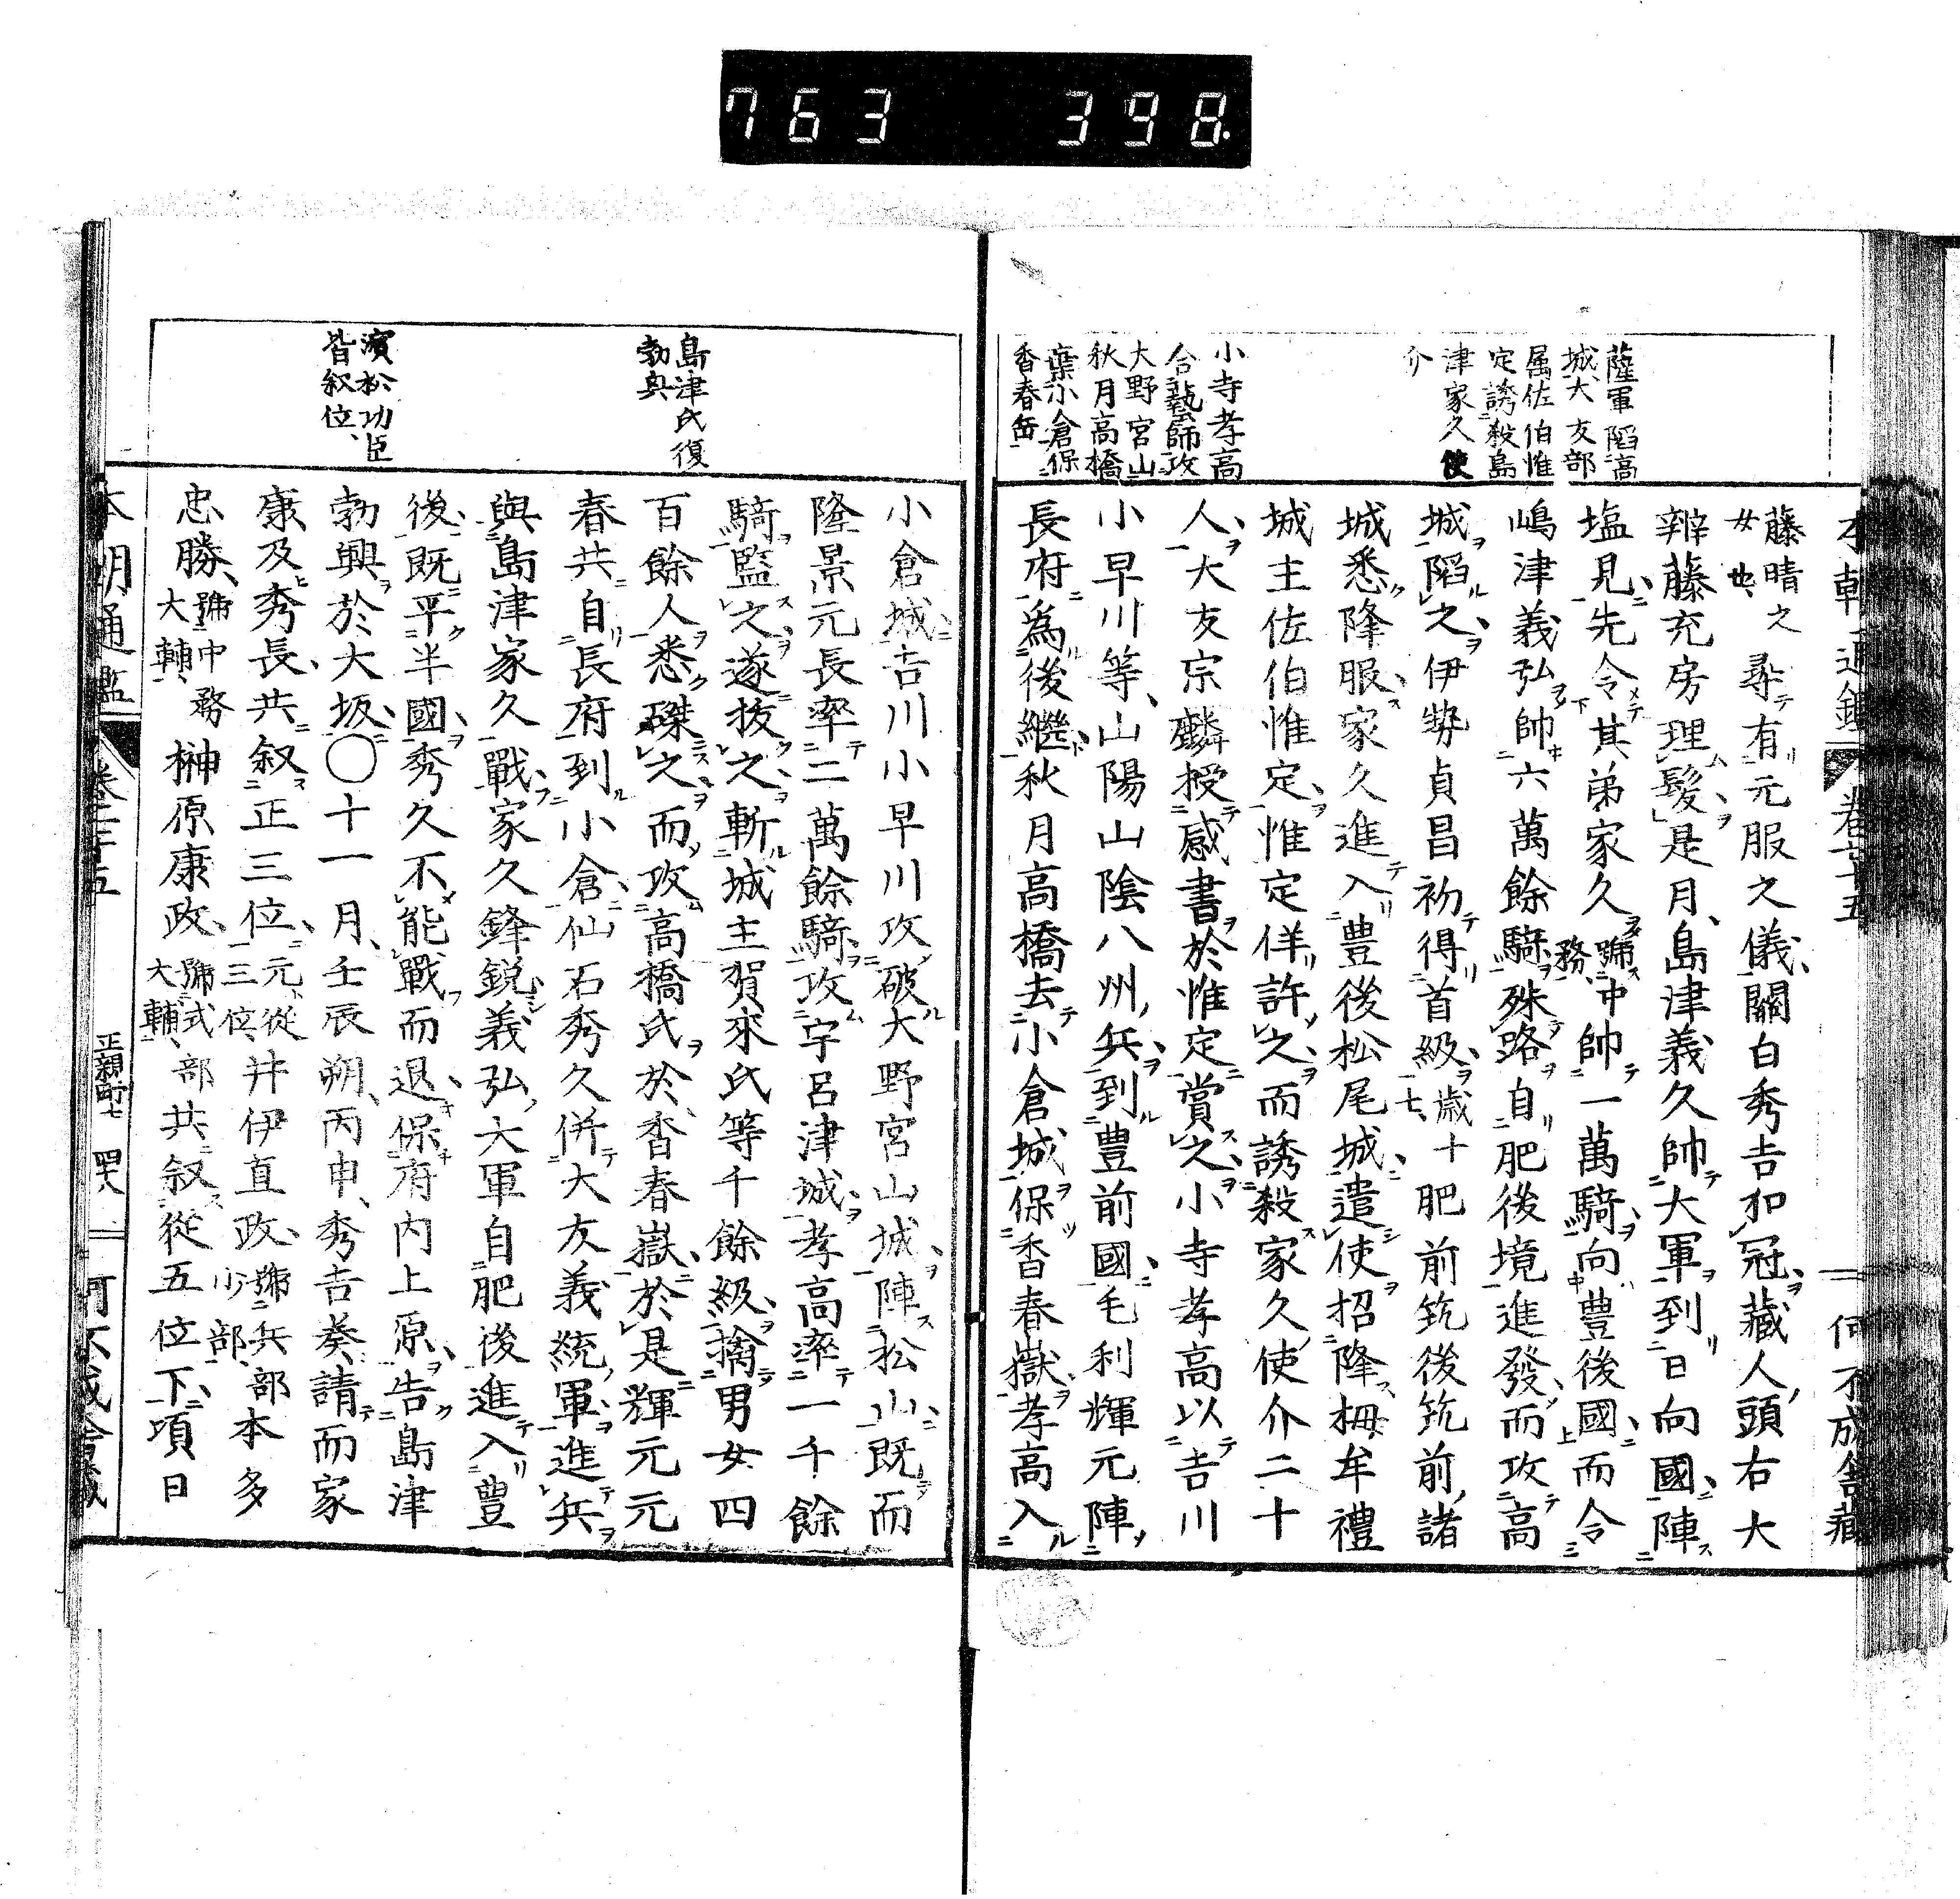 763 398
薩軍陷高
城大友部
属佐伯惟
定誘殺島
津家久使
介
小寺孝高
合藝師攻
大野宮山
秋月高橋
葉小倉保
香春嶽
藤晴之女也 尋有元服之儀關白秀吉加冠藏人頭右大
辨藤充房理髮是月島津義久帥大軍到日向國陣
塩見先令其弟家久號中務帥一萬騎向豊後國而令
嶋津義弘帥六萬餘騎殊路自肥後境進發而攻高
城陷之伊勢貞昌初得首級歳十七肥前筑後筑前諸
城悉降服家久進入豊後松尾城遣使招降栂牟禮
城主佐伯惟定惟定佯許之而誘殺家久使介二十
人大友宗麟授感書於惟定賞之小寺孝高以吉川
小早川等山陽山陰八州兵到豊前國毛利輝元陣
長府為後繼秋月高橋去小倉城保香春嶽孝高入
島津氏復
勃興
濱松功臣
皆叙位
小倉城吉川小早川攻破大野宮山城陣松山既而
隆景元長率二萬餘騎攻宇呂津城孝高率一千餘
騎監之遂抜之斬城主賀來氏等千餘級擒男女四
百餘人悉磔之而攻高橋氏於香春嶽於是輝元元
春共自長府到小倉仙石秀久併大友義統軍進兵
與島津家久戰家久鋒鋭義弘大軍自肥後進入豊
後既平半國秀久不能戰而退保府内上原告島津
勃興於大坂〇十一月壬辰朔丙申秀吉奏請而家
康及秀長共叙正三位元從三位井伊直政號兵部少部本多
忠勝號中務大輔榊原康政號式部大輔共叙從五位下項日